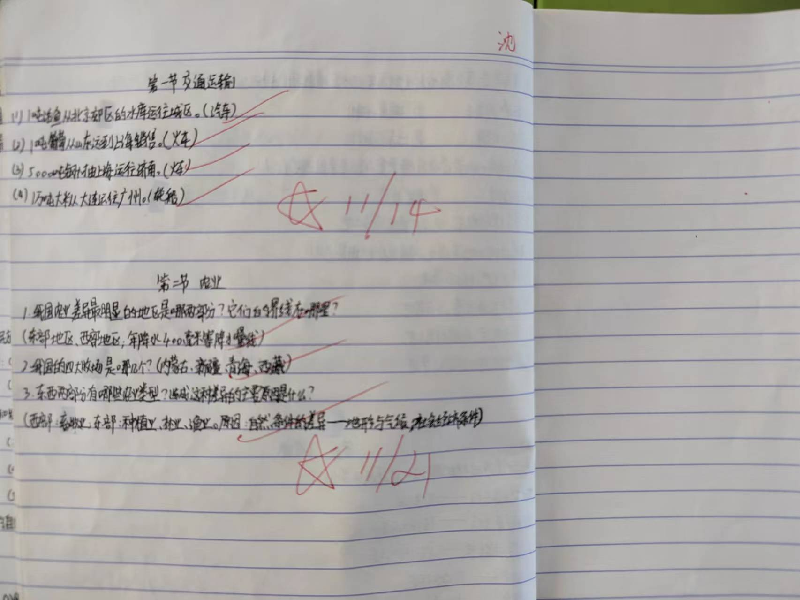 沈
第一节 交通运输
(1) 1吨活鱼从北京郊区的水库运往城区。(汽车)
(2) 1吨 从山东运到上海销售。(火车)
(3) 5000吨 由上海运往济南。(火车)
(4) 1万吨大米从大连运往广州。(轮船)
☆ 11/14
第二节 农业
1. 我国农业差异最明显的地区是哪两部分?它们的界线在哪里?
(东部地区、西部地区,年降水400毫米等降水量线)
2. 我国的四大牧场是哪几个?(内蒙古、新疆、青海、西藏)
3. 东西两部分有哪些农业类型?造成这种差异的主要原因是什么?
(西部:畜牧业,东部:种植业、林业、渔业。原因:自然条件的差异——地形与气候,社会经济条件)
☆ 11/21